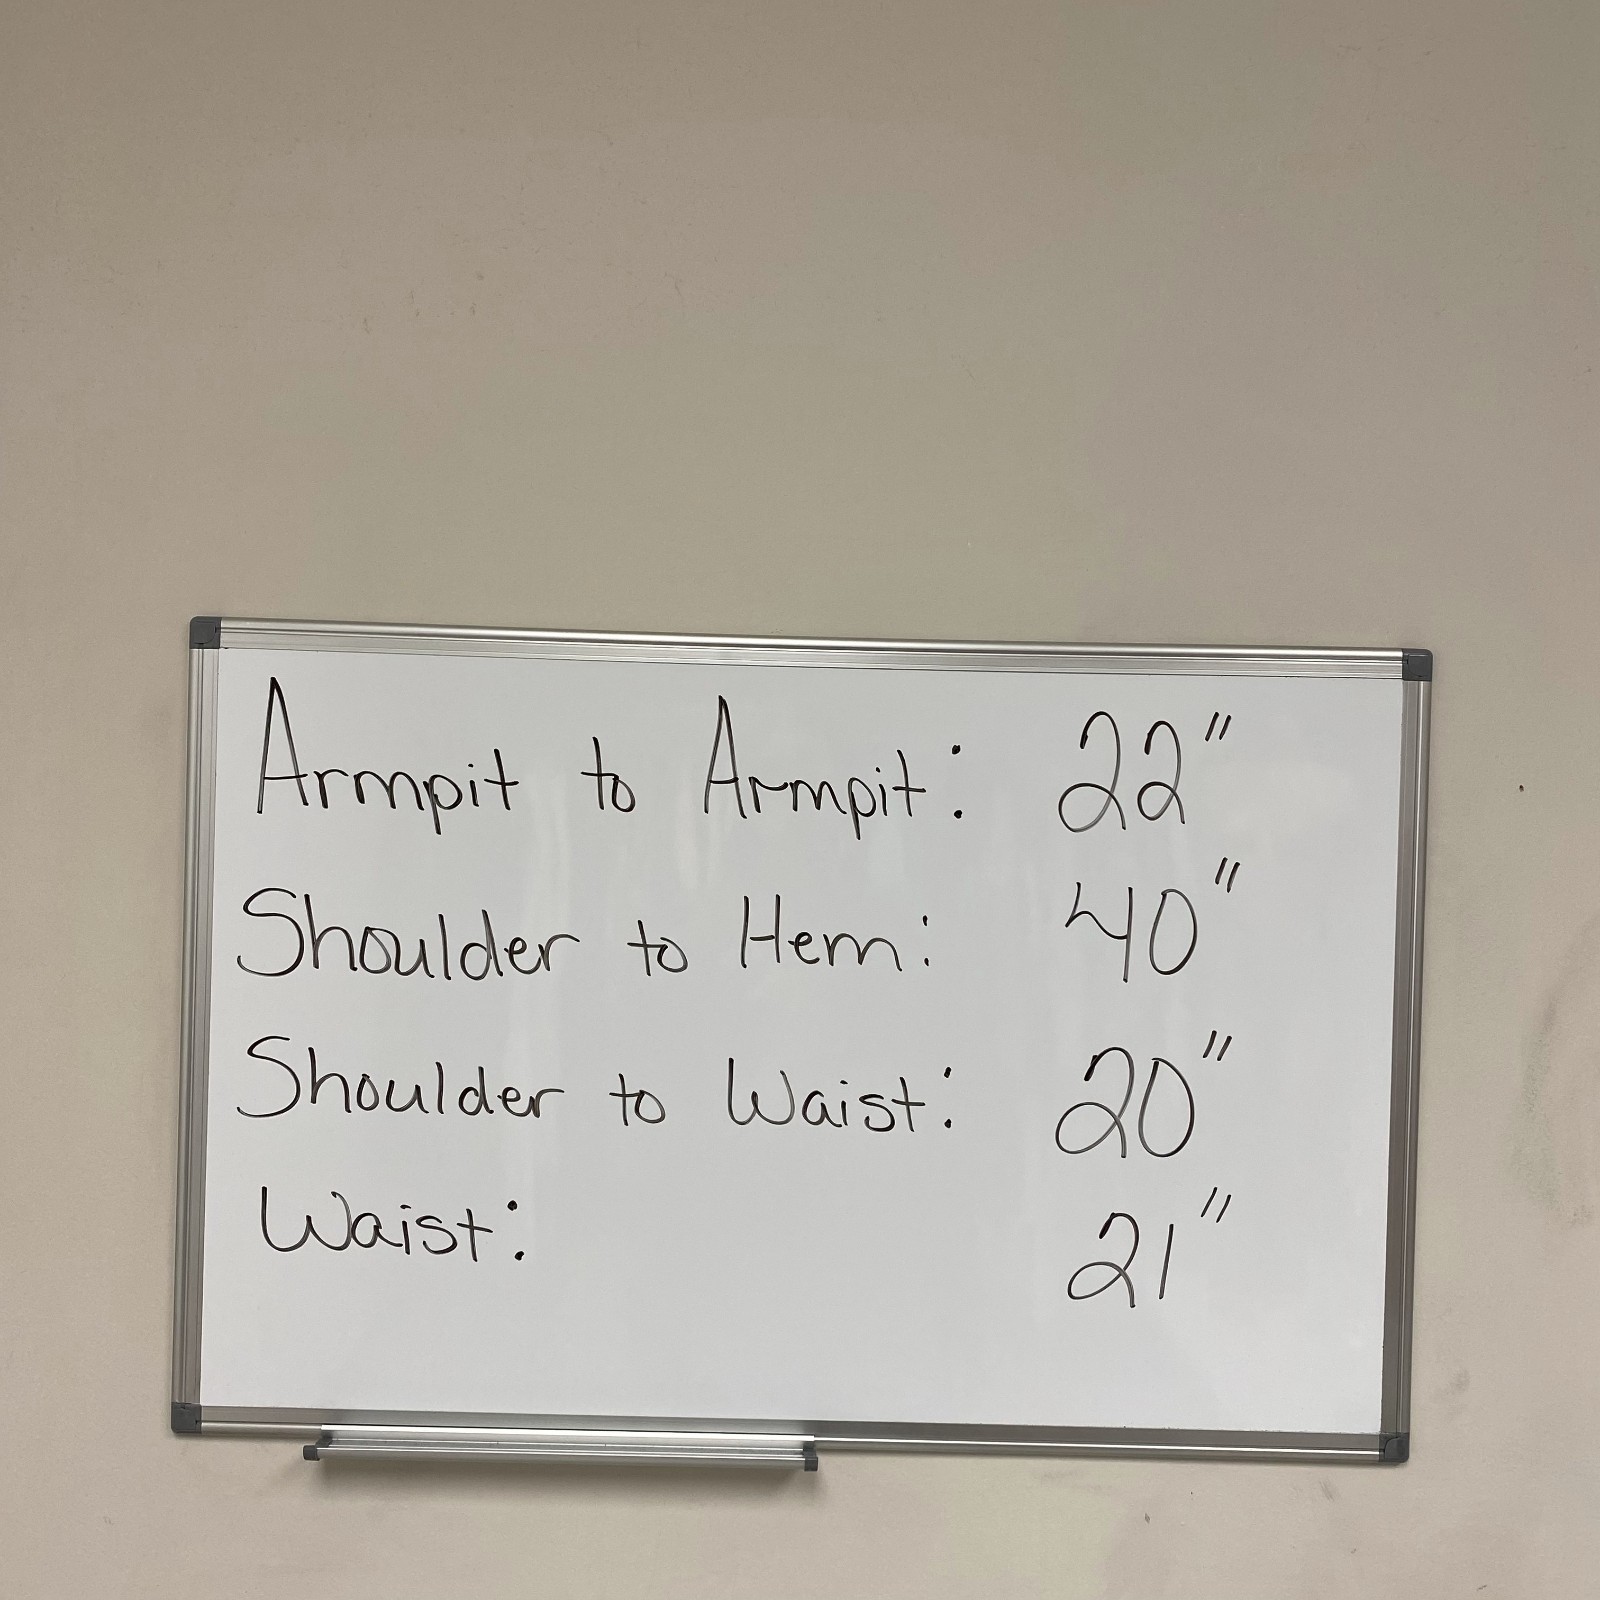 Armpit to Armpit: 22"
Shoulder to Hem: 40"
Shoulder to Waist: 20"
Waist: 21"